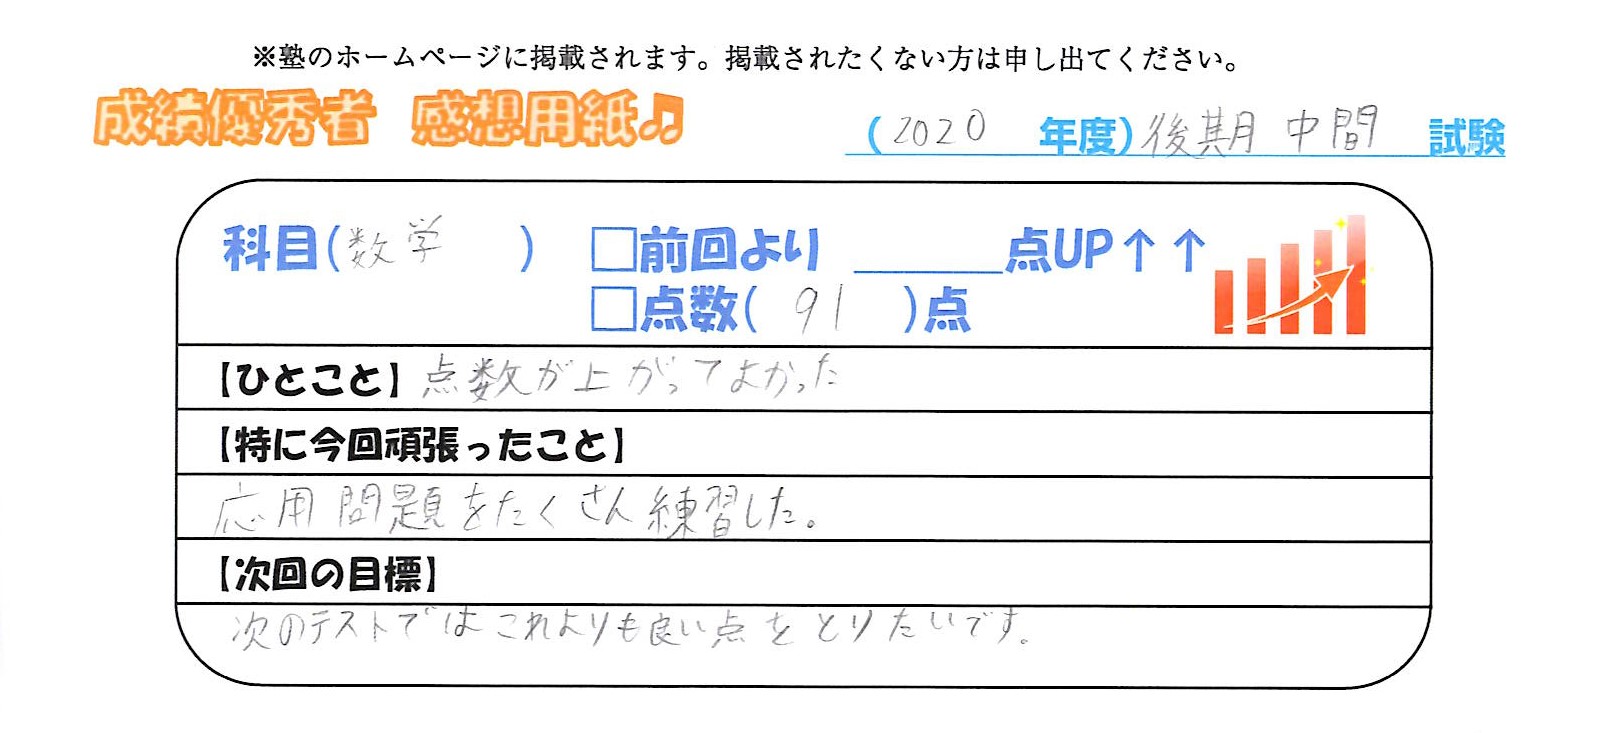 ※塾のホームページに掲載されます。掲載されたくない方は申し出てください。
成績優秀者 感想用紙♫
(2020 年度)後期中間 試験
科目(数学 ) □前回より ______点UP↑↑
□点数( 91 )点
【ひとこと】点数が上がってよかった
【特に今回頑張ったこと】
応用問題をたくさん練習した。
【次回の目標】
次のテストではこれよりも良い点をとりたいです。